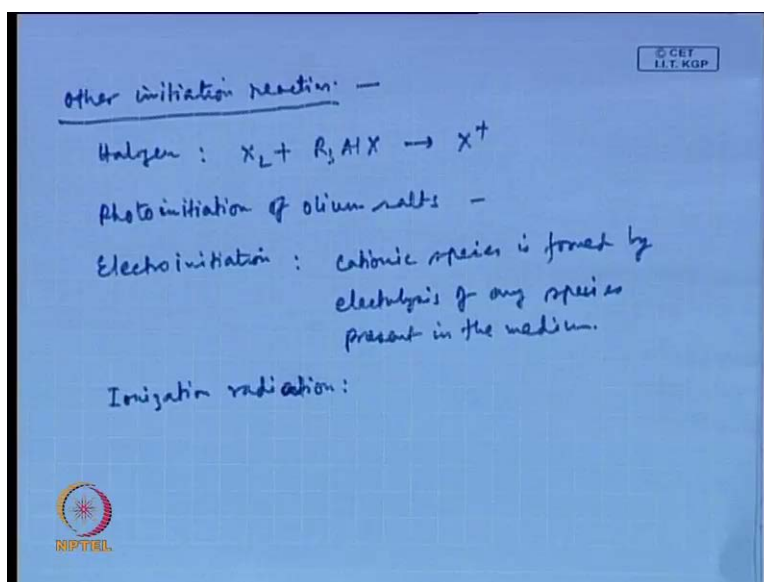 © CET
I.I.T. KGP
other initiation reaction: —
Halogen : X₂ + R₃AlX → X⁺
Photoinitiation of olium salts —
Electroinitiation : cationic species is formed by
electrolysis of any species
present in the medium.
Ionization radiation:
NPTEL